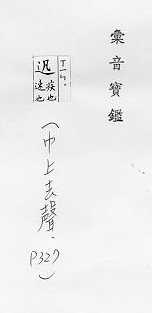 彙音寶鑑
迅
疾也
速也
(巾上去聲、
P327)